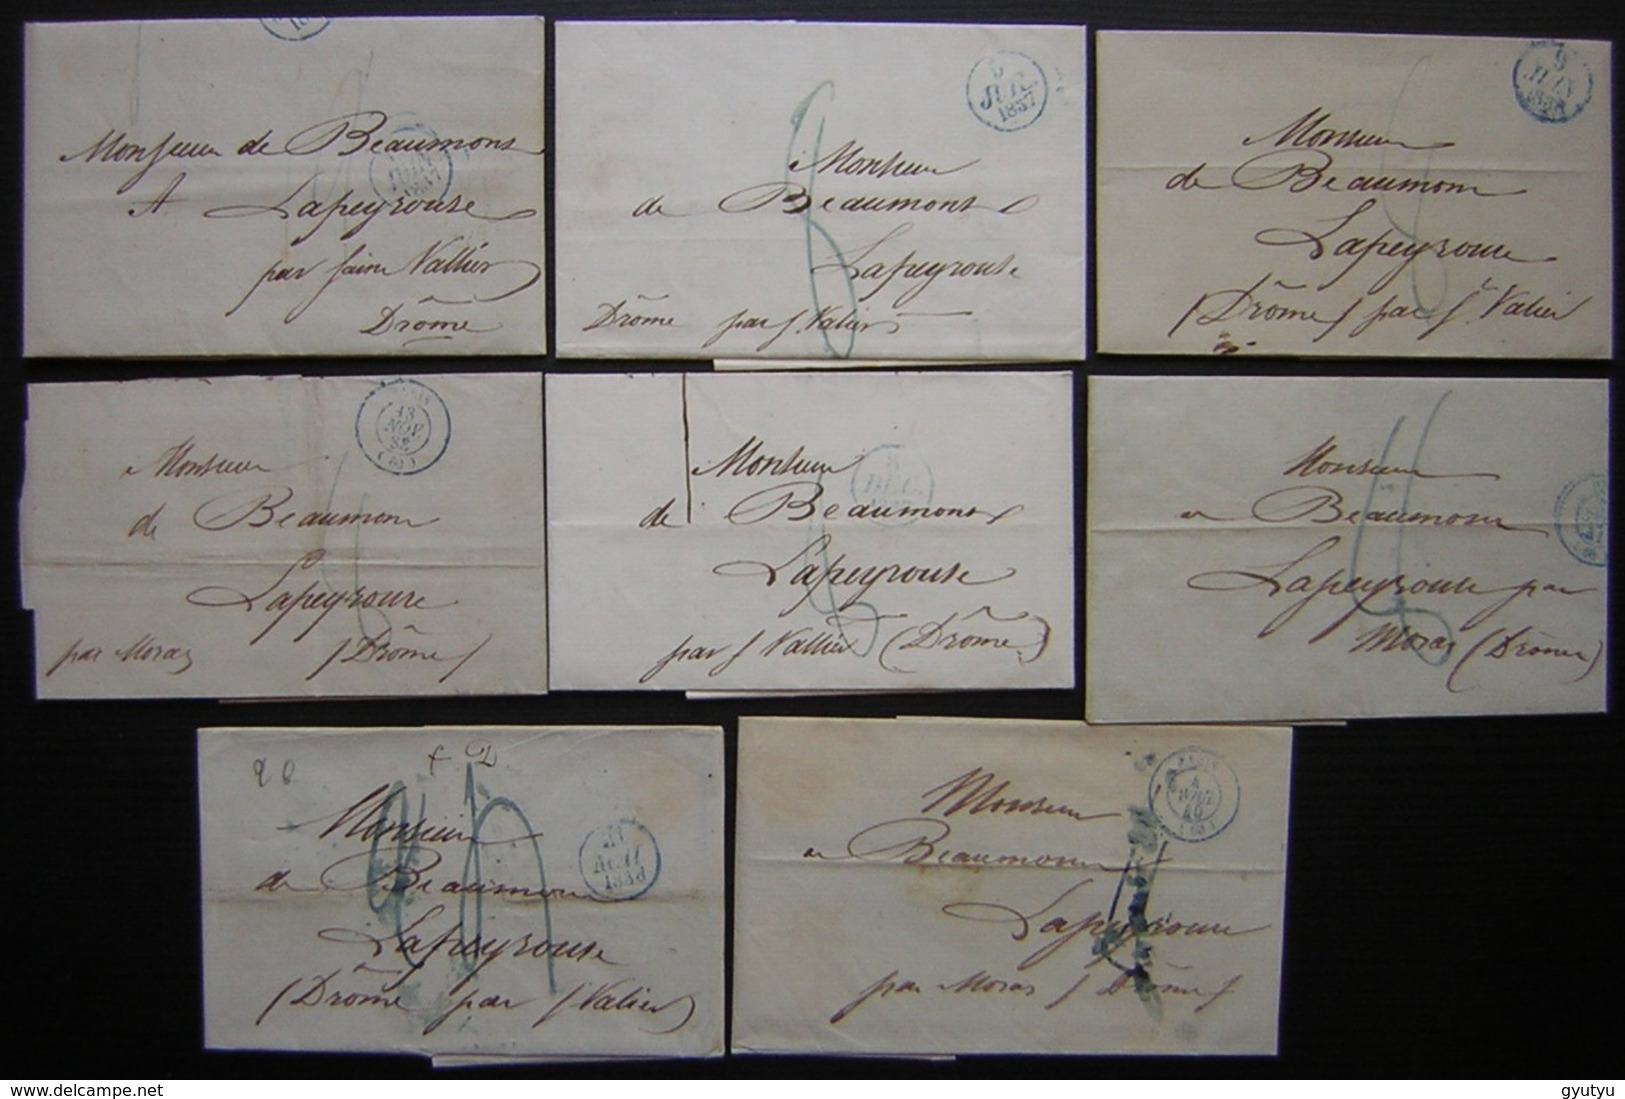 Monsieur de Beaumont
A Lapeyrouse
par Saint Vallier
Drôme
JUIN
1837
5
JUIL.
1837
Monsieur
de Beaumont
Lapeyrouse
Drôme par S. Valier
9
JUIN
Monsieur
de Beaumont
Lapeyrouse
(Drôme) par St. Valier
13
NOV.
(60)
Monsieur
de Beaumont
Lapeyrouse
par Moras (Drôme)
DEC.
Monsieur
de Beaumont
Lapeyrouse
par St Vallier (Drôme)
Monsieur
de Beaumont
Lapeyrouse par
Moras (Drôme)
Monsieur
de Beaumont
Lapeyrouse
(Drôme par St Valier)
PARIS
4
(60)
Monsieur
de Beaumont
Lapeyrouse
par Moras (Drôme)
www.delcampe.net
gyutyu